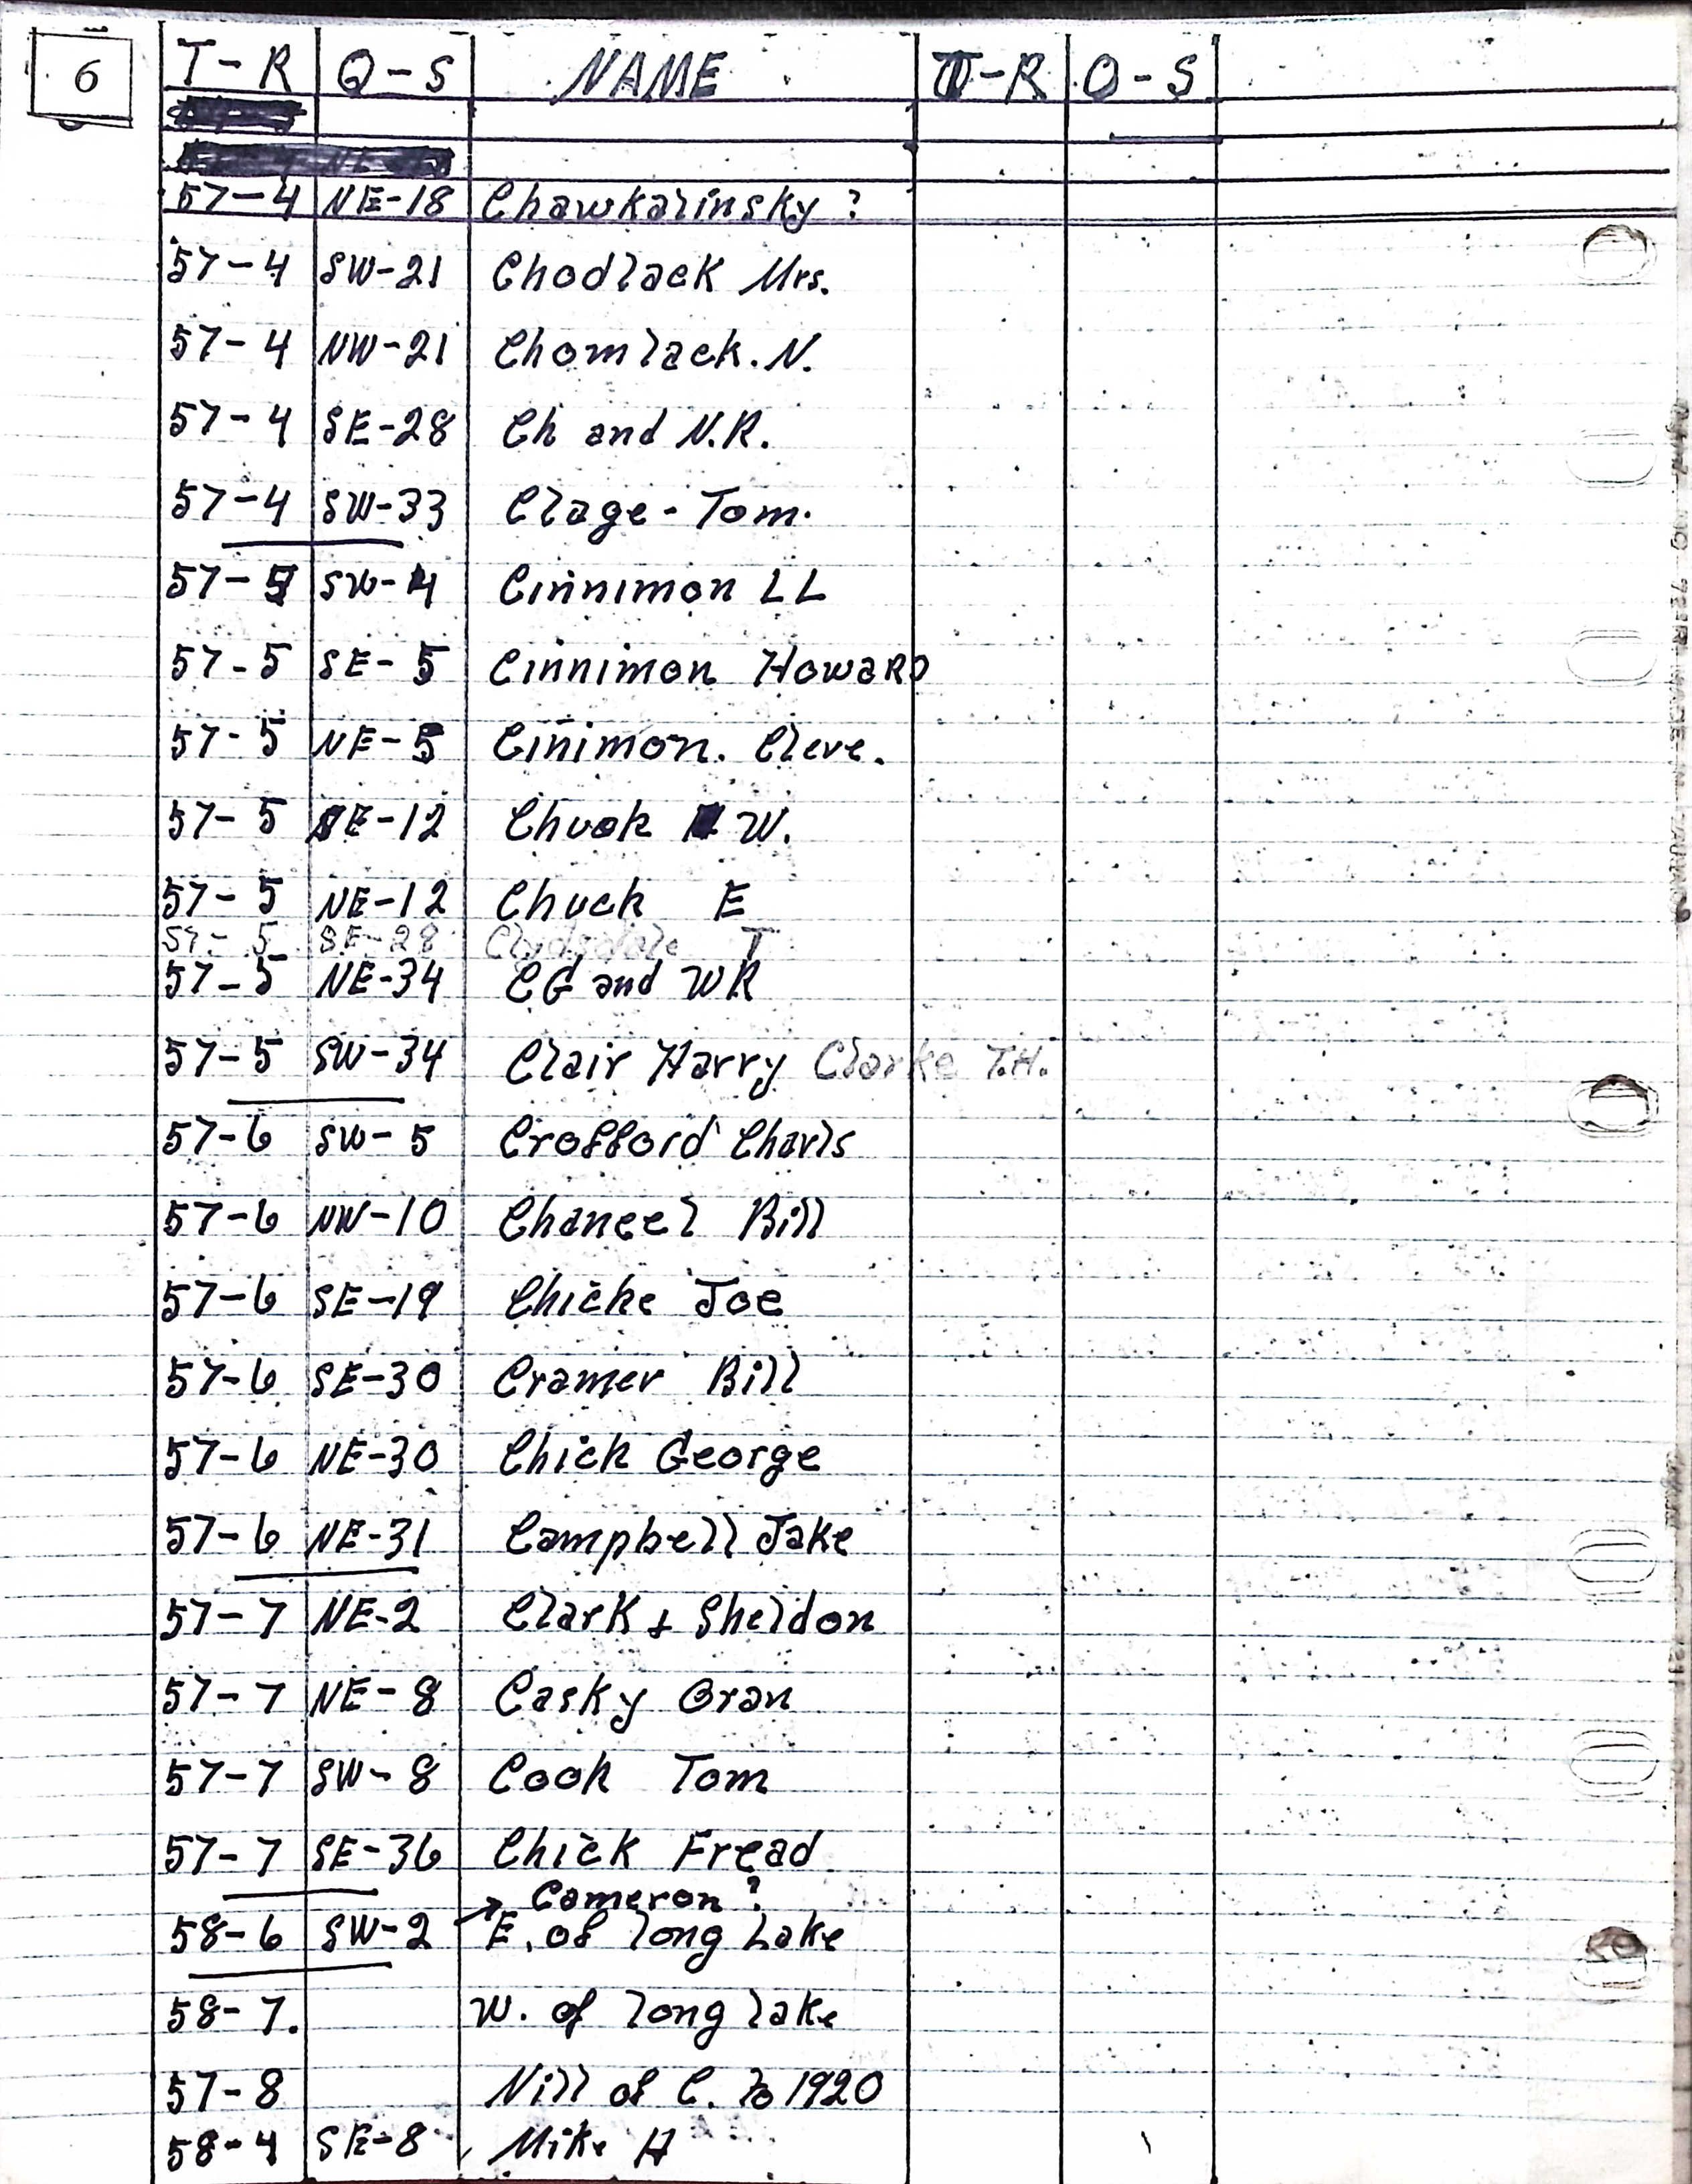 6
T-R Q-S NAME T-R Q-S
57-4 NE-18 Chawkalinsky ?
57-4 SW-21 Chodlack Mrs.
57-4 NW-21 Chomlack. N.
57-4 SE-28 Ch and N.R.
57-4 SW-33 Clage-Tom.
57-5 SW-4 Cinnimon LL
57-5 SE-5 Cinnimon Howard
57-5 NE-5 Cinimon. Cleve.
57-5 SE-12 Chuck W.
57-5 NE-12 Chuck E
57-5 SE-28 Clydsdale T
57-5 NE-34 CG and WR
57-5 SW-34 Clair Harry Clarke T.H.
57-6 SW-5 Crofford Charls
57-6 NW-10 Chancel Bill
57-6 SE-19 Chicke Joe
57-6 SE-30 Cramer Bill
57-6 NE-30 Chick George
57-6 NE-31 Campbell Jake
57-7 NE-2 Clark + Sheldon
57-7 NE-8 Casky Oran
57-7 SW-8 Cook Tom
57-7 SE-36 Chick Fread
Cameron ?
58-6 SW-2 E. of long Lake
58-7. W. of long lake
57-8 Nill of C. To 1920
58-4 SE-8 Mike H